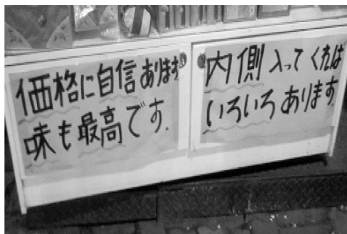 価格に自信あります
味も最高です.
内側入ってくれば
いろいろあります